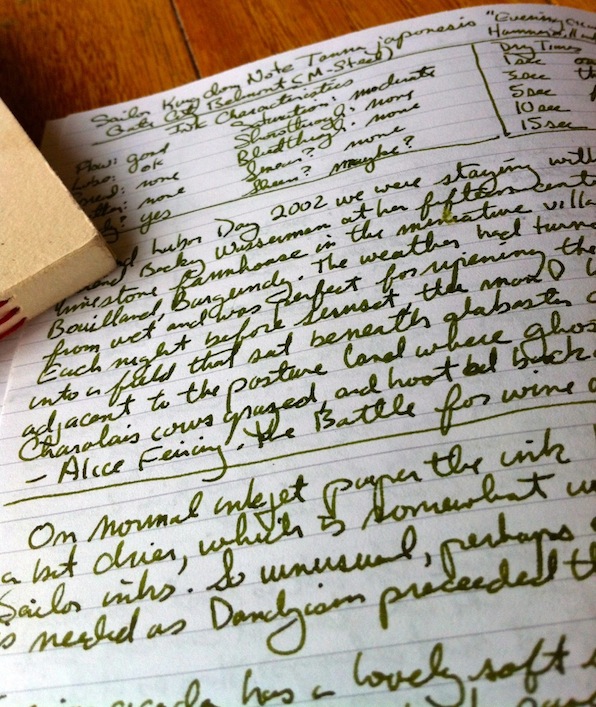 Sailor King dom Note Tanna japonesis "Evening
Gate City Belmont (M-Steel) Hammermill
Ink Characteristics
Flow: good Saturation: moderate
Lube: ok Showthrough: none
Spread: none Bleedthrough: none
none Smear? none
yes Sheen? maybe?
Dry Times
1 sec
3 sec
5 sec
10 sec
15 sec
Labor Day 2002 we were staying with
Becky Wasserman at her fifteenth cent
limestone farmhouse in the miniature villa
Bouilland, Burgundy. The weather had turn
from wet and was perfect for ripening the
Each night before sunset, the man I
into a field that sat beneath alabaster
adjacent to the pasture land where ghos
Charolais cows grazed, and hoot ed back
- Alice Feiring, The Battle for wine
On normal inkjet paper the ink
a bit drier, which is somewhat un
Sailor inks. So unusual, perhaps
is needed as Dandyism preceeded th
has a lovely soft